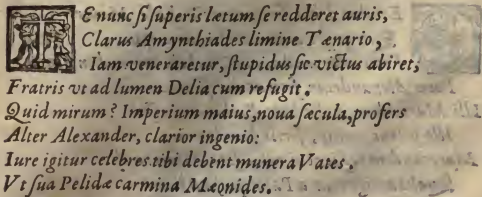 TE nunc si superis lætum se redderet auris,
Clarus Amynthiades limine Tænario,
Iam veneraretur, stupidus sic victus abiret,
Fratris vt ad lumen Delia cum refugit.
Quid mirum? Imperium maius, noua sæcula, profers
Alter Alexander, clarior ingenio:
Iure igitur celebres tibi debent munera Vates,
Vt sua Pelidæ carmina Mæonides.